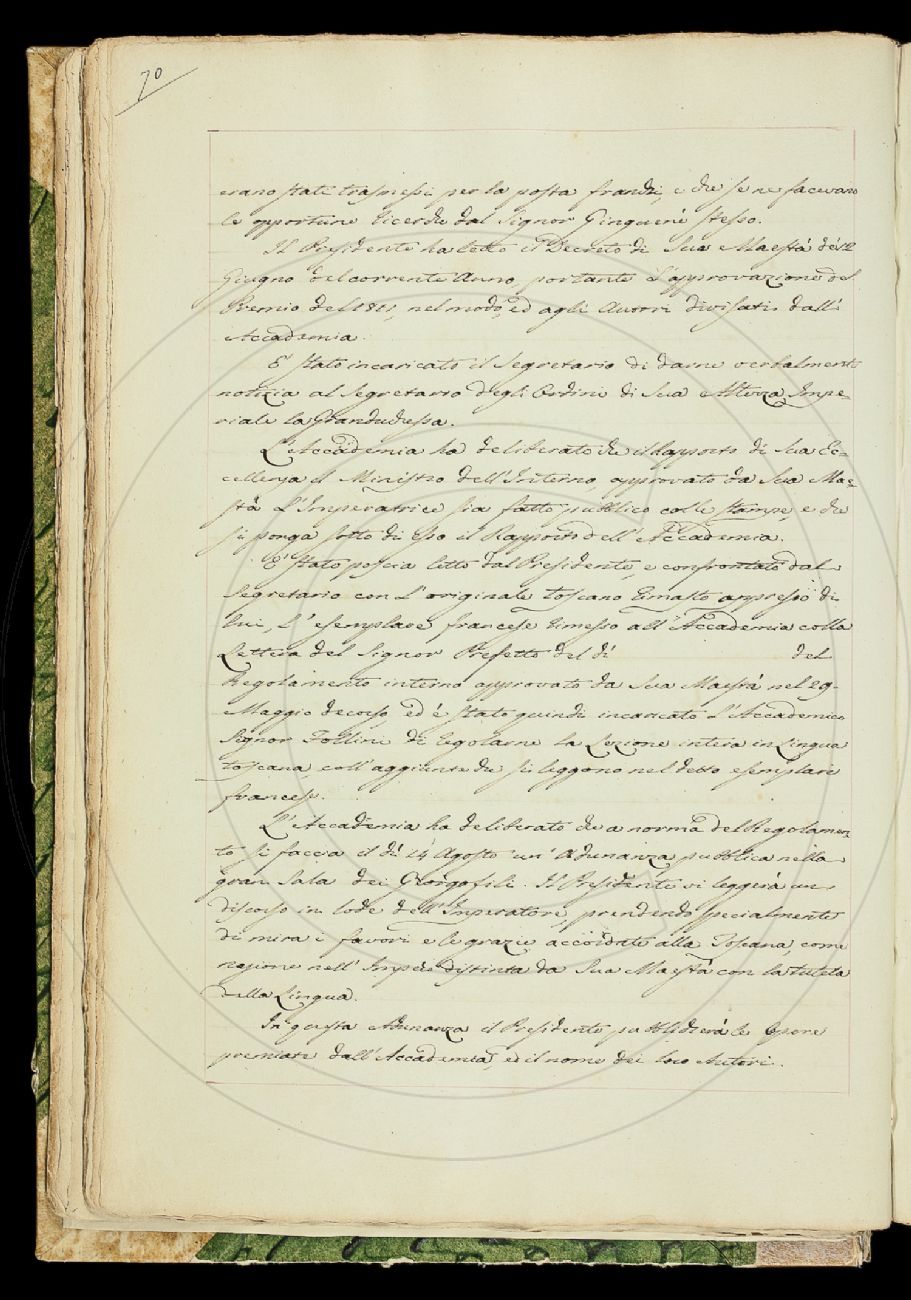 70
erano stati trasmessi per la posta franchi, e che se ne facevano
le opportune ricerche dal Signor Ginguené stesso.
Il Presidente ha letto il Decreto di Sua Maestà de' 12
Giugno del corrente Anno portante l'approvazione del
Premio del 1811, nel modo, ed agli Autori divisati dall'
Accademia.
E' stato incaricato il Segretario di darne verbalmente
notizia al Segretario degli Ordini di Sua Altezza Impe-
riale la Granduchessa.
L'Accademia ha deliberato che il Rapporto di Sua Ec-
cellenza il Ministro dell'Interno, approvato da Sua Mae-
stà L'Imperatrice sia fatto pubblico colle stampe, e che
si ponga sotto di esso il Rapporto dell'Accademia.
E' stato poscia letto dal Presidente, e confrontato dal
Segretario con l'originale toscano rimasto appresso di
lui, l'esemplare francese rimesso all'Accademia colla
Lettera del Signor Prefetto del dì del
Regolamento interno approvato da Sua Maestà nel 29
Maggio decorso, ed è stato quindi incaricato l'Accademico
Signor Follini di regolarne la Lezione intera in Lingua
toscana, coll'aggiunte che si leggono nel detto esemplare
francese.
L'Accademia ha deliberato che a norma del Regolamen-
to si faccia il dì 14 Agosto un'Adunanza pubblica nella
gran Sala dei Georgofili. Il Presidente vi leggerà un
discorso in lode dell'Imperatore, prendendo specialmente
di mira i favori e le grazie accordate alla Toscana, come
nazione nell'Impero distinta da Sua Maestà con la tutela
della Lingua.
In questa Adunanza il Presidente pubblicherà le Opere
premiate dall'Accademia, ed il nome dei loro Autori.